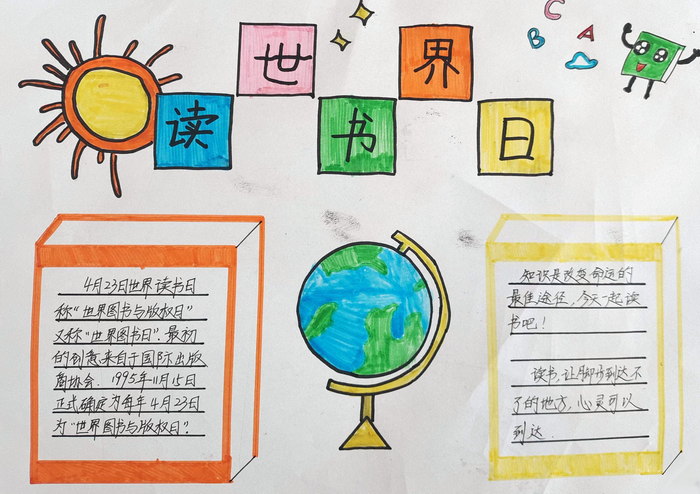 世界
读书日
C
B A
4月23日世界读书日
称“世界图书与版权日”
又称“世界图书日”.最初
的创意来自于国际出版
商协会.1995年11月15日
正式确定为每年4月23日
为“世界图书与版权日”.
知识是改变命运的
最佳途径,今天一起读
书吧!
读书,让脚步到达不
了的地方,心灵可以
到达.